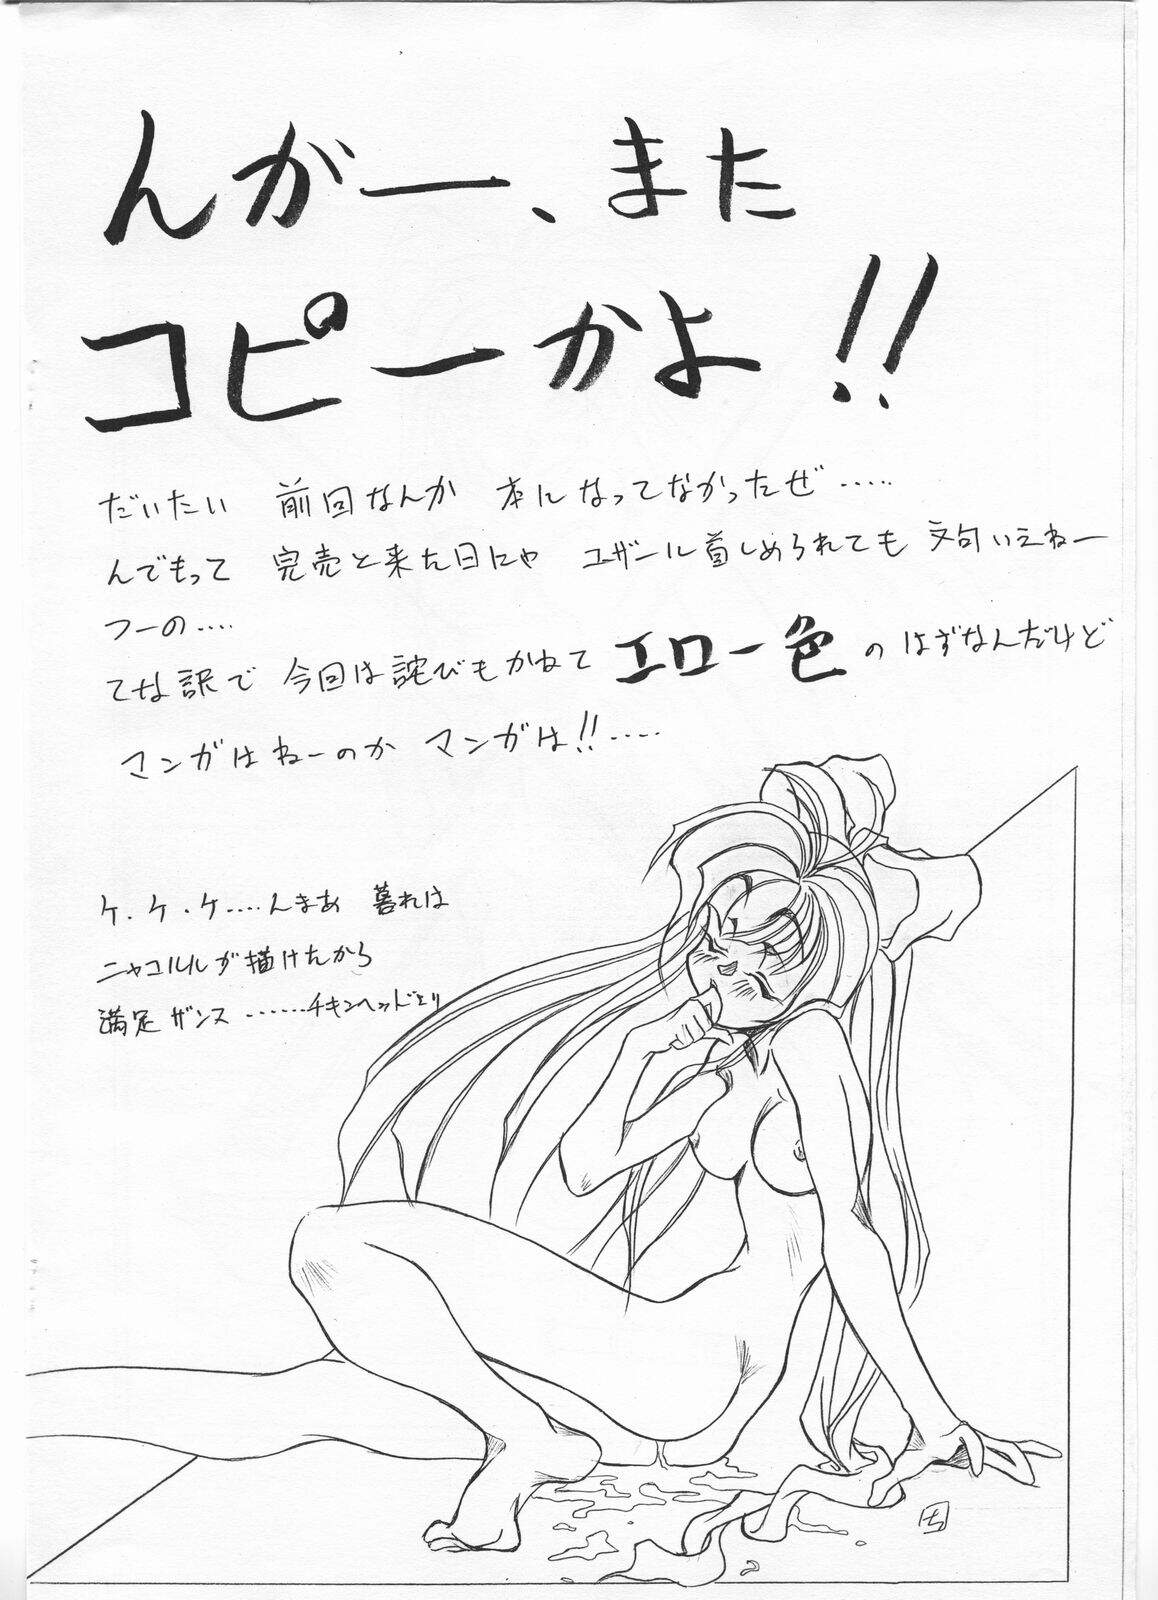 んがー、また
コピーかよ!!
だいたい 前回なんか 本になってなかったぜ……
んでもって 完売と来た日にゃ ユザール首しめられても 文句いえねー
つーの‥‥
てな訳で 今回は詫びもかねて エロー色のはずなんだけど
マンガはねーのか マンガは!!……
ケ.ケ.ケ‥‥んまあ 暮れは
ニャコルルが描けたから
満足ザンス ……チキンヘッドより